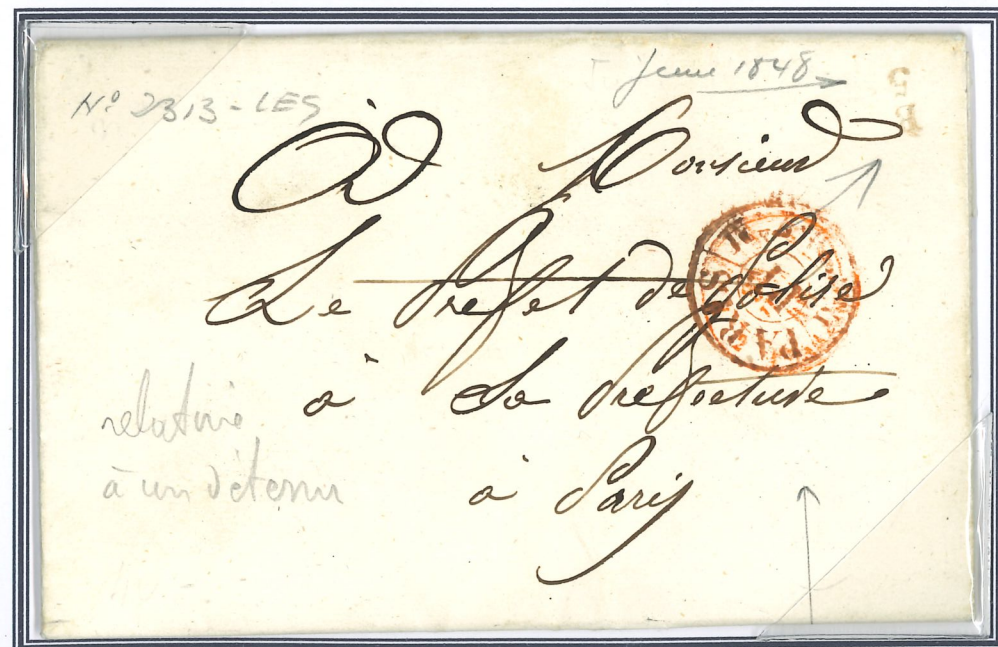 Nº 2313 - LES
1848
A Monsieur
Le Prefet de Police
à La Prefecture
à Paris
PARIS
relative
à un détenu